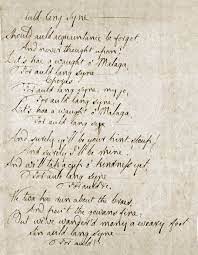 Auld lang syne
Should auld acquaintance be forgot
And never thought upon?
Let's hae a waught o' Malaga,
For auld lang syne.
Chorus
For auld lang syne, my jo,
For auld lang syne
Let's hae a waught o' Malaga
For auld lang syne.
And surely ye'll be your pint stoup!
And surely I'll be mine!
And we'll tak a cup o' kindness yet,
For auld lang syne
For auld &c.
We twa hae run about the braes,
And pou't the gowans fine;
But we've wander'd mony a weary foot
Sin auld lang syne
For auld